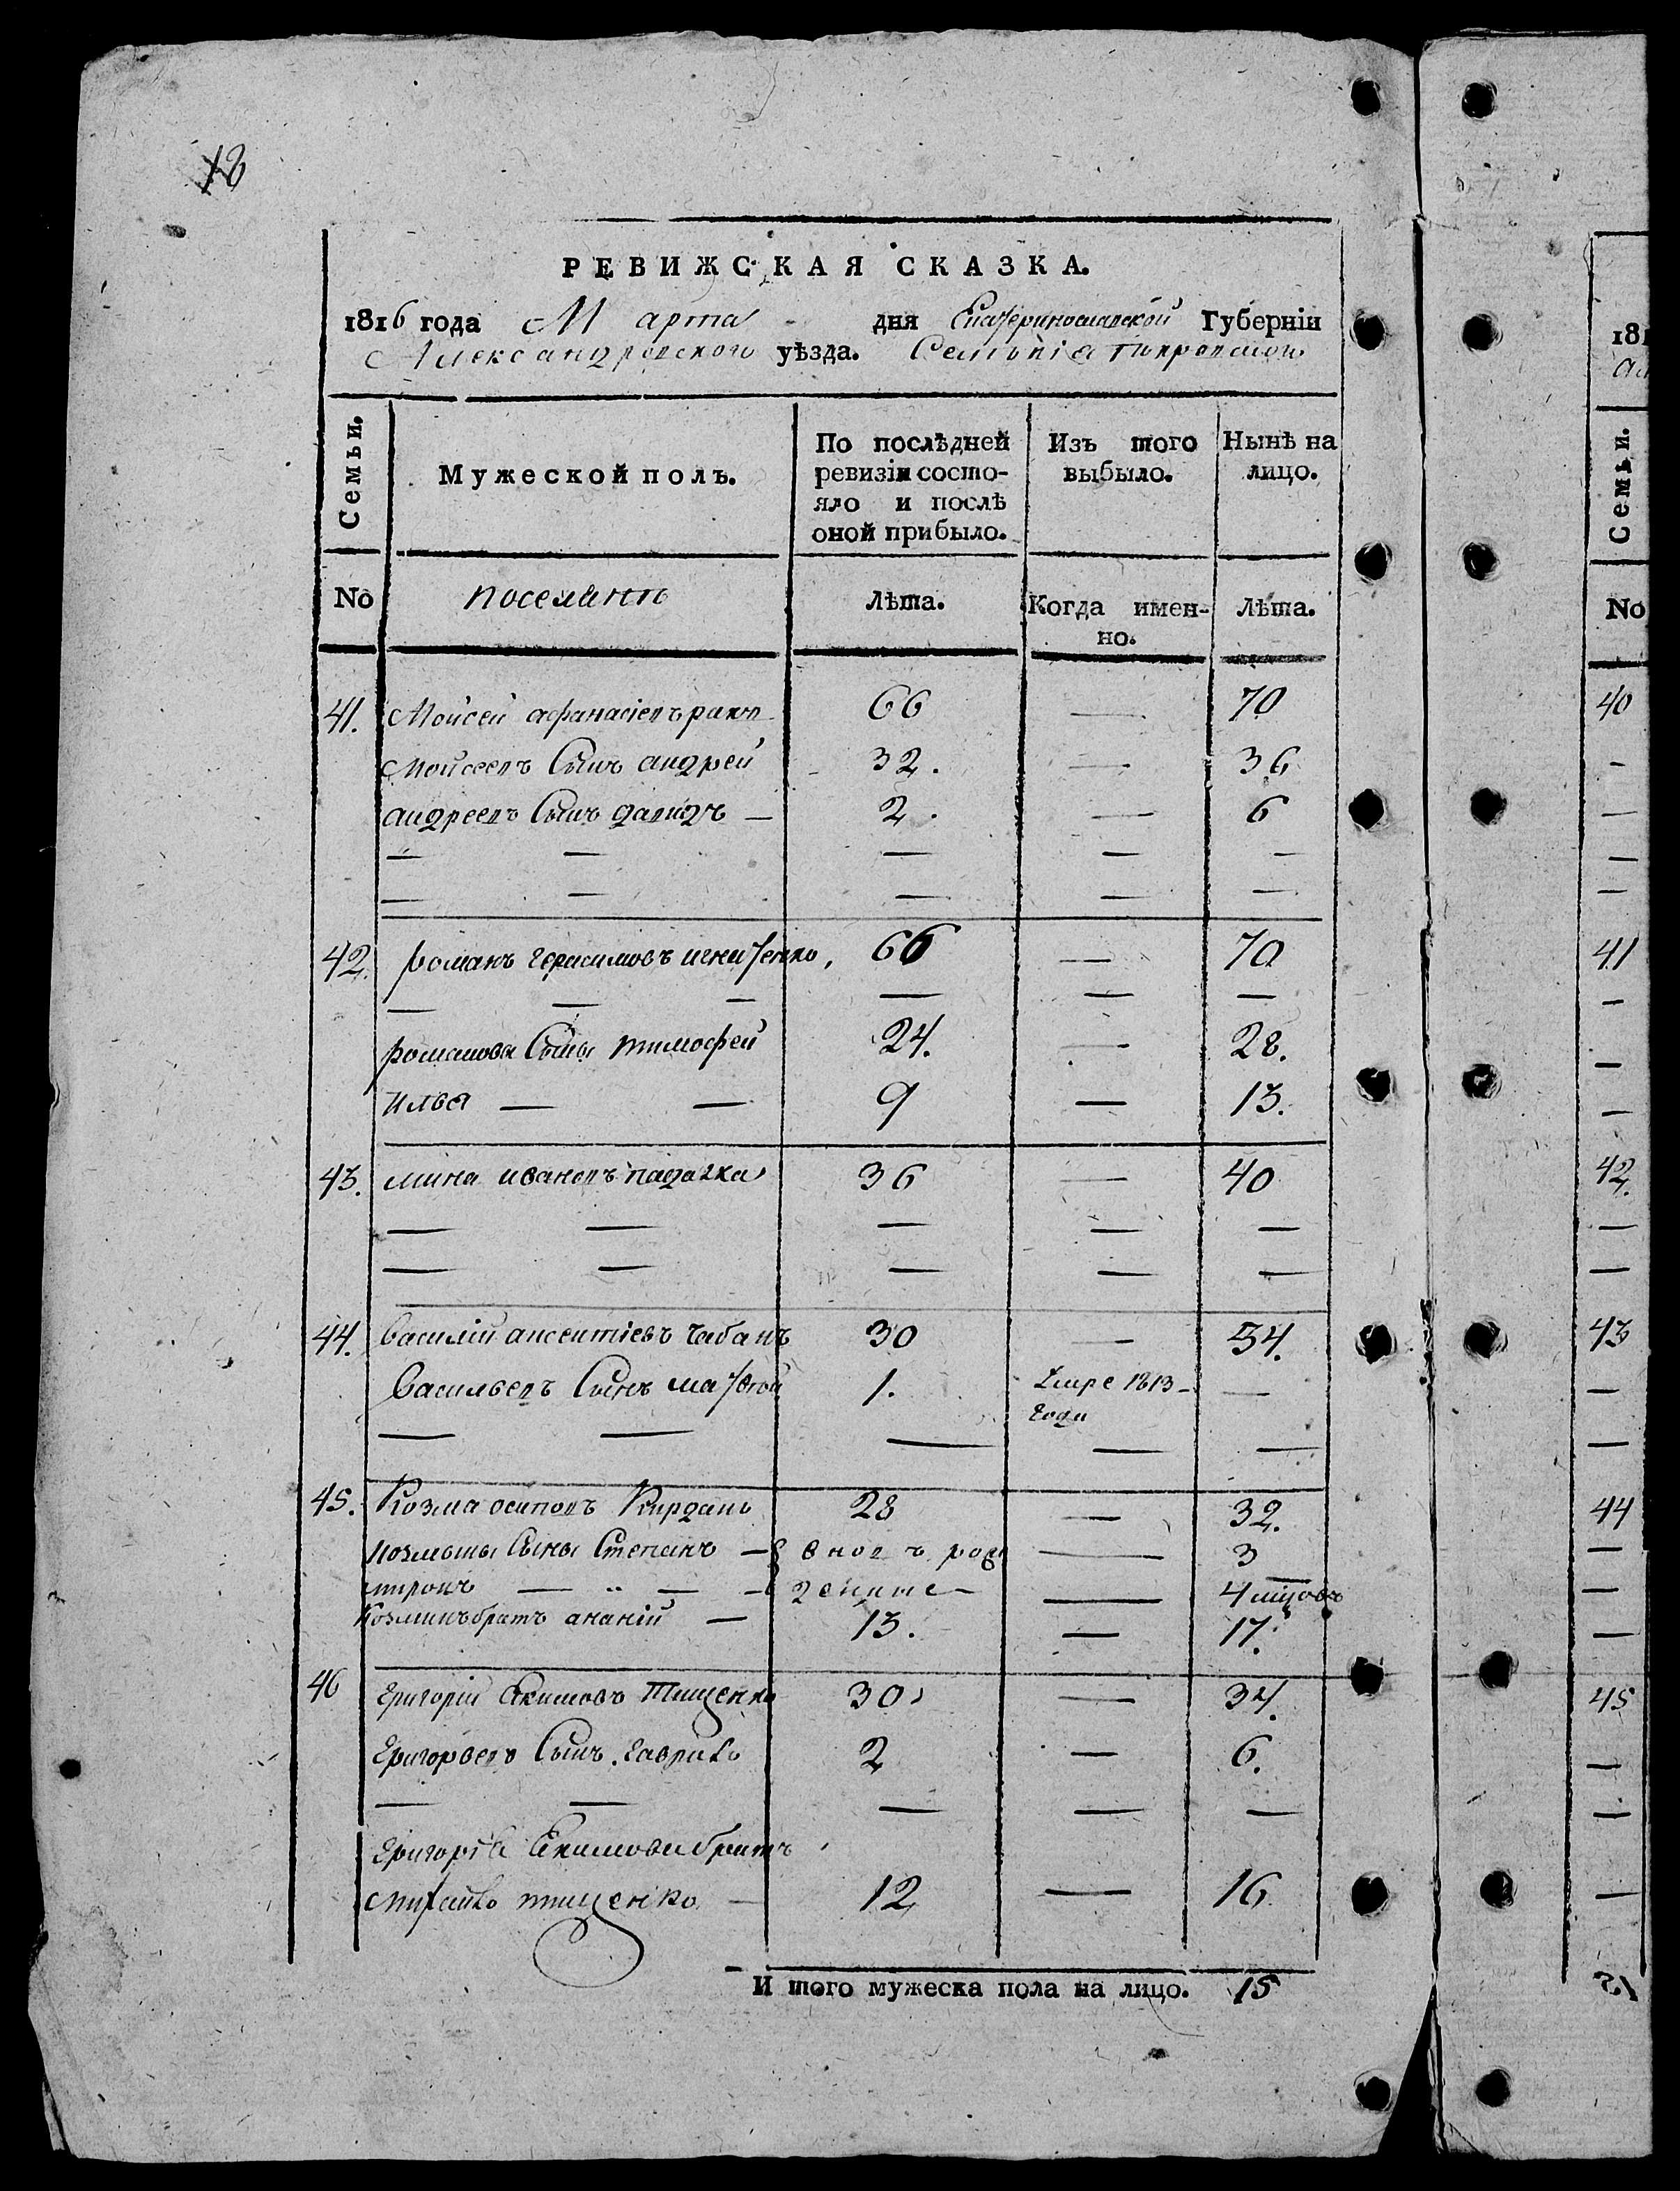 18
РЕВИЖСКАЯ СКАЗКА.
1816 года Марта дня Екатеринославской Губерніи
Александровского уѣзда. Селенія Покровского
Семьи.
Мужеской полъ.
По послѣдней ревизіи состо-
яло и послѣ оной прибыло.
Изъ того выбыло.
Нынѣ на лицо.
№ поселянъ Лѣта. Когда имен-
но. Лѣта.
41. Мойсей афанасіевъ 66 — 70
Мойсеевъ Сынъ андрей 32. — 36
андреевъ Сынъ давидъ — 2. — 6
— — — — —
— — — — —
42. романъ герасимовъ игнатенко, 66 — 70
— — — — — —
романова Сыны тимофей 24. — 28.
илья — — 9 — 13.
43. мина ивановъ падалка 36 — 40
— — — — —
— — — — —
44. Василій авсентіевъ чабанъ 30 — 34.
Васильевъ Сынъ матвей 1. умре 1813- —
года
— — — — —
45. Козма осиповъ Кирданъ 28 — 32.
козмины Сыны Степанъ — вновъ рож — 3
миронъ — „ — — денные — — 4 мцовъ
Козминъ братъ ананій — 13. — 17.
46 григорій Екимовъ Тищенко 30 — 34.
григорьевъ Сынъ гаврило 2 — 6.
— — — — —
григорія Екимова братъ
михайло тищенко — 12 — 16
И того мужеска пола на лицо. 15
181
Семьи.
No
40
41
42.
43
44
45